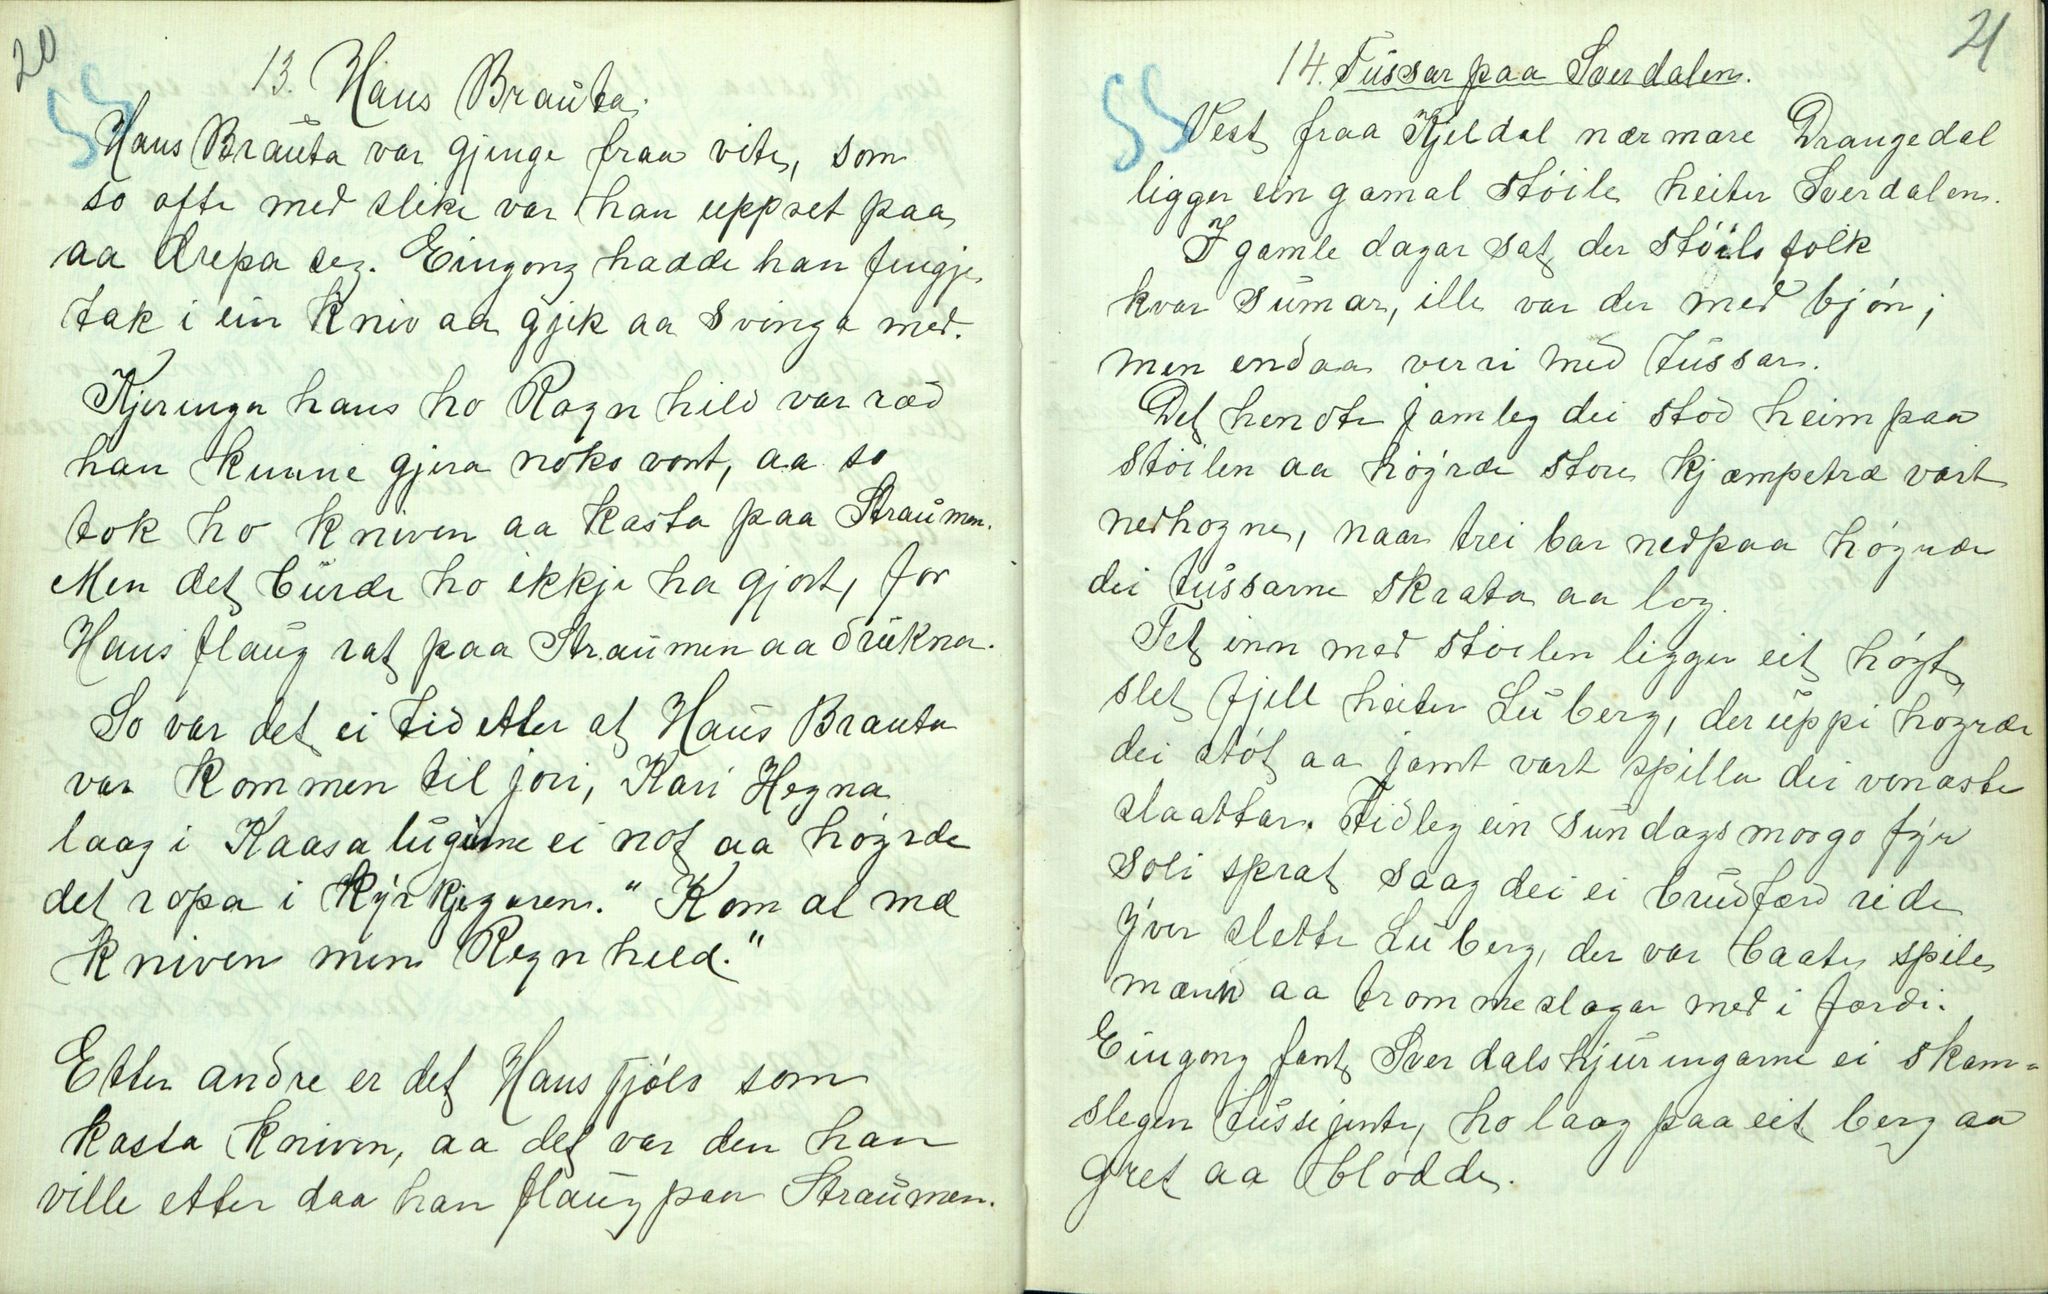 20
13. Haus Brauta.
SS
Haus Brauta var gjenge fraa vite, som
so ofte med slike var han uppset paa
aa drepa seg. Eingong hadde han fengje
tak i ein kniv aa gjek aa svinga med.
Kjeringa hans ho Ragnhild var ræd
han kunne gjera noko vont, aa so
tok ho kniven aa kasta paa Straumen.
Men det burde ho ikkje ha gjort, for
Haus flaug rat paa Straumen aa drukna.
So var det ei tid etter at Haus Brauta
var kommen til jori, Kari Hegna
laag i Kaasa luginne ei not aa høgrde
det ropa i kyrkjegaren. "Kom at mæ
kniven min Regnhild."
Etter andre er det Haus Tjøls som
kasta kniven, aa det var den han
ville etter daa han flaug paa Straumen.
21
14. Tussar paa Sverdalen.
SS
Vest fraa Kjeldal nærmare Drangedal
ligger ein gamal støile heiter Sverdalen.
I gamle dagar sat der støilsfolk
kvar sumar, ille var der med bjøn;
men endaa verri med tussar.
Det hendte jamleg dei stod heim paa
støilen aa høgrde store kjæmpetræ vart
nedhogne, naar trei bar nedpaa høgrde
dei tussarne skrata aa log.
Tet inn med støilen ligger eit høgt
slet fjell heiter Luberg, der uppi høgrde
dei støt aa jamt vart spilla dei venaste
slaattar. Tidleg ein sundagsmorgo fyr
soli sprat saag dei ei brudfærd ride
yver slette Luberg, der var baate spile
mænn aa trommeslagar med i færdi.
Eingong fant Sverdalskjeringarne ei skam-
slegen tussejente, ho laag paa eit berg aa
gret aa blødde.